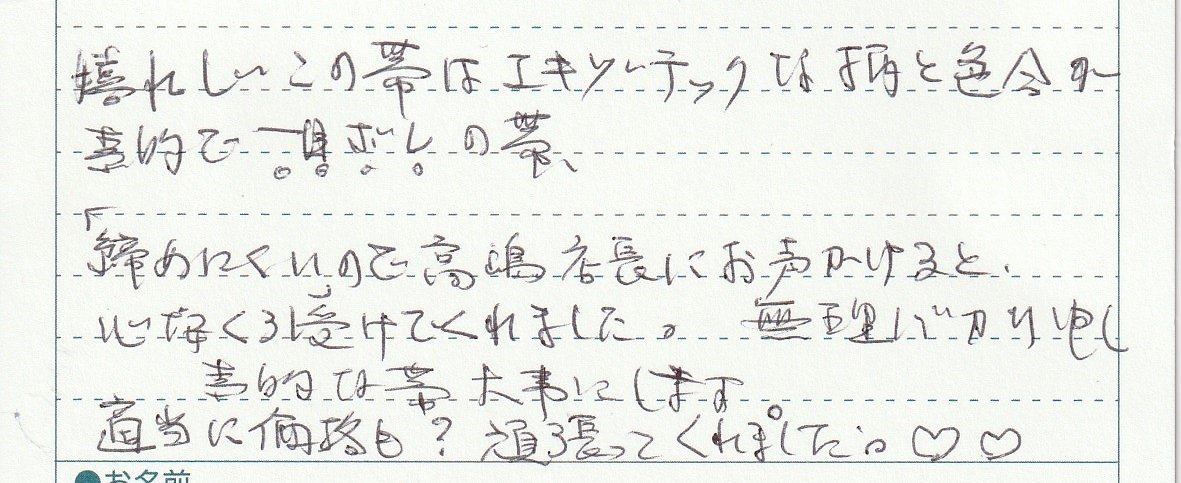 嬉れしいこの帯はエキゾーチックな柄と色合が
素的で一目ボレの帯、
「締めにくいので高嶋店長にお声かけると、
心好く引受けてくれました。無理バカリ申し
素的な帯大事にします。
適当に価格も?頑張ってくれました。♡♡
●お名前